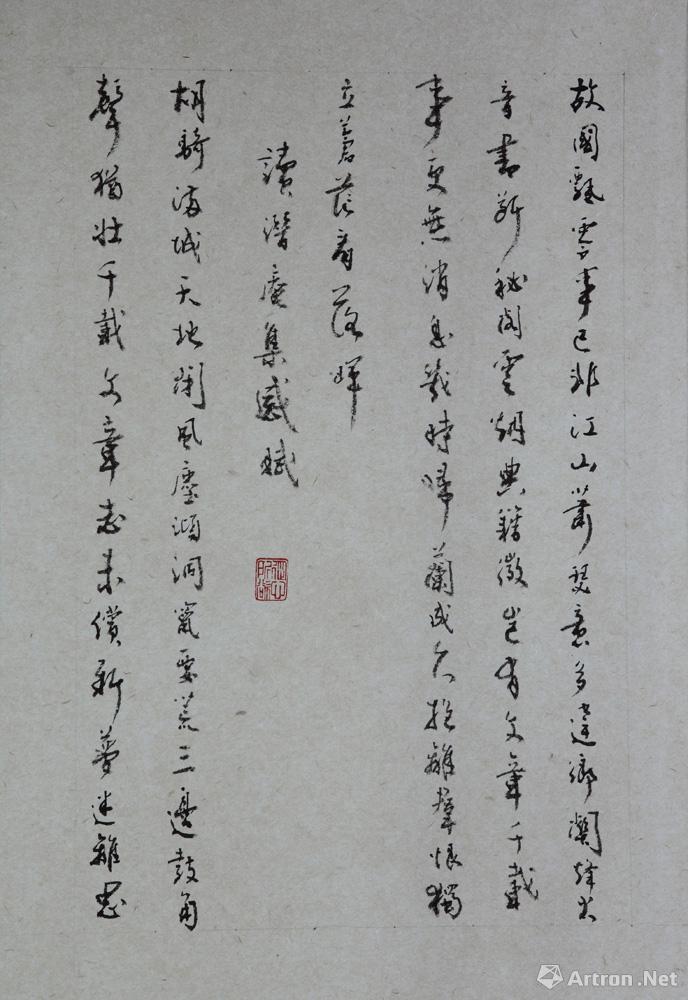 故國飄零事已非江山蕭瑟意多違鄉關烽火
音書斷秘閣雲煙典籍微豈有文章千載
事更無消息幾時歸蘭成久抱離群恨獨
立蒼茫看落暉
讀潛庵集感賦
胡騎滿城天地閉風塵澒洞窮荒三邊鼓角
聲猶壯千載文章志未償新夢迷離
Artron.Net